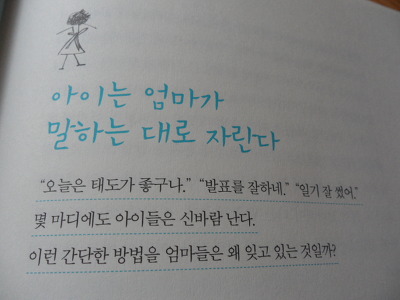 아이는 엄마가
말하는 대로 자린다
“오늘은 태도가 좋구나.” “발표를 잘하네.” “일기 잘 썼어.”
몇 마디에도 아이들은 신바람 난다.
이런 간단한 방법을 엄마들은 왜 잊고 있는 것일까?